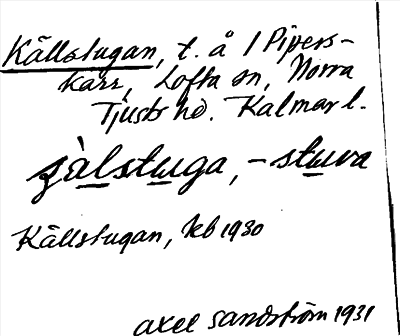 Källstugan, t. å 1 Pipers-
kärr, Lofta sn, Norra
Tjusts hd. Kalmar l.
çälstuga, -stuva
Källstugan, kb 1930
Axel Sandström 1931